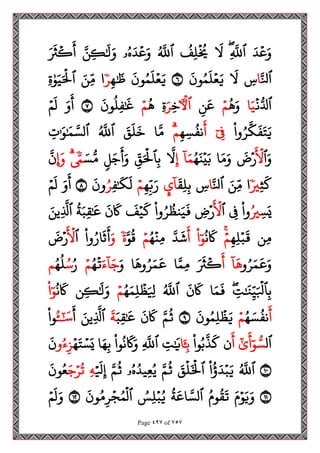 وَعْدَ ٱللَّهِ ۖ لَا يُخْلِفُ ٱللَّهُ وَعْدَهُۥ وَلَٰكِنَّ أَكْثَرَ
ٱلنَّاسِ لَا يَعْلَمُونَ ٦ يَعْلَمُونَ ظَٰهِرًا مِّنَ ٱلْحَيَوٰةِ
ٱلدُّنْيَا وَهُمْ عَنِ ٱلْءَاخِرَةِ هُمْ غَٰفِلُونَ ٧ أَوَلَمْ
يَتَفَكَّرُوا۟ فِىٓ أَنفُسِهِم ۗ مَّا خَلَقَ ٱللَّهُ ٱلسَّمَٰوَٰتِ
وَٱلْأَرْضَ وَمَا بَيْنَهُمَآ إِلَّا بِٱلْحَقِّ وَأَجَلٍ مُّسَمًّى ۗ وَإِنَّ
كَثِيرًا مِّنَ ٱلنَّاسِ بِلِقَآئِ رَبِّهِمْ لَكَٰفِرُونَ ٨ أَوَلَمْ
يَسِيرُوا۟ فِى ٱلْأَرْضِ فَيَنظُرُوا۟ كَيْفَ كَانَ عَٰقِبَةُ ٱلَّذِينَ
مِن قَبْلِهِمْ ۚ كَانُوٓا۟ أَشَدَّ مِنْهُمْ قُوَّةً وَأَثَارُوا۟ ٱلْأَرْضَ
وَعَمَرُوهَآ أَكْثَرَ مِمَّا عَمَرُوهَا وَجَآءَتْهُمْ رُسُلُهُم
بِٱلْبَيِّنَٰتِ ۖ فَمَا كَانَ ٱللَّهُ لِيَظْلِمَهُمْ وَلَٰكِن كَانُوٓا۟
أَنفُسَهُمْ يَظْلِمُونَ ٩ ثُمَّ كَانَ عَٰقِبَةَ ٱلَّذِينَ أَسَٰٓـُٔوا۟
ٱلسُّوٓأَىٰٓ أَن كَذَّبُوا۟ بِـَٔايَٰتِ ٱللَّهِ وَكَانُوا۟ بِهَا يَسْتَهْزِءُونَ
١٠ ٱللَّهُ يَبْدَؤُا۟ ٱلْخَلْقَ ثُمَّ يُعِيدُهُۥ ثُمَّ إِلَيْهِ تُرْجَعُونَ
١١ وَيَوْمَ تَقُومُ ٱلسَّاعَةُ يُبْلِسُ ٱلْمُجْرِمُونَ ١٢ وَلَمْ
Page ٤٩٧ of ٧٥٧